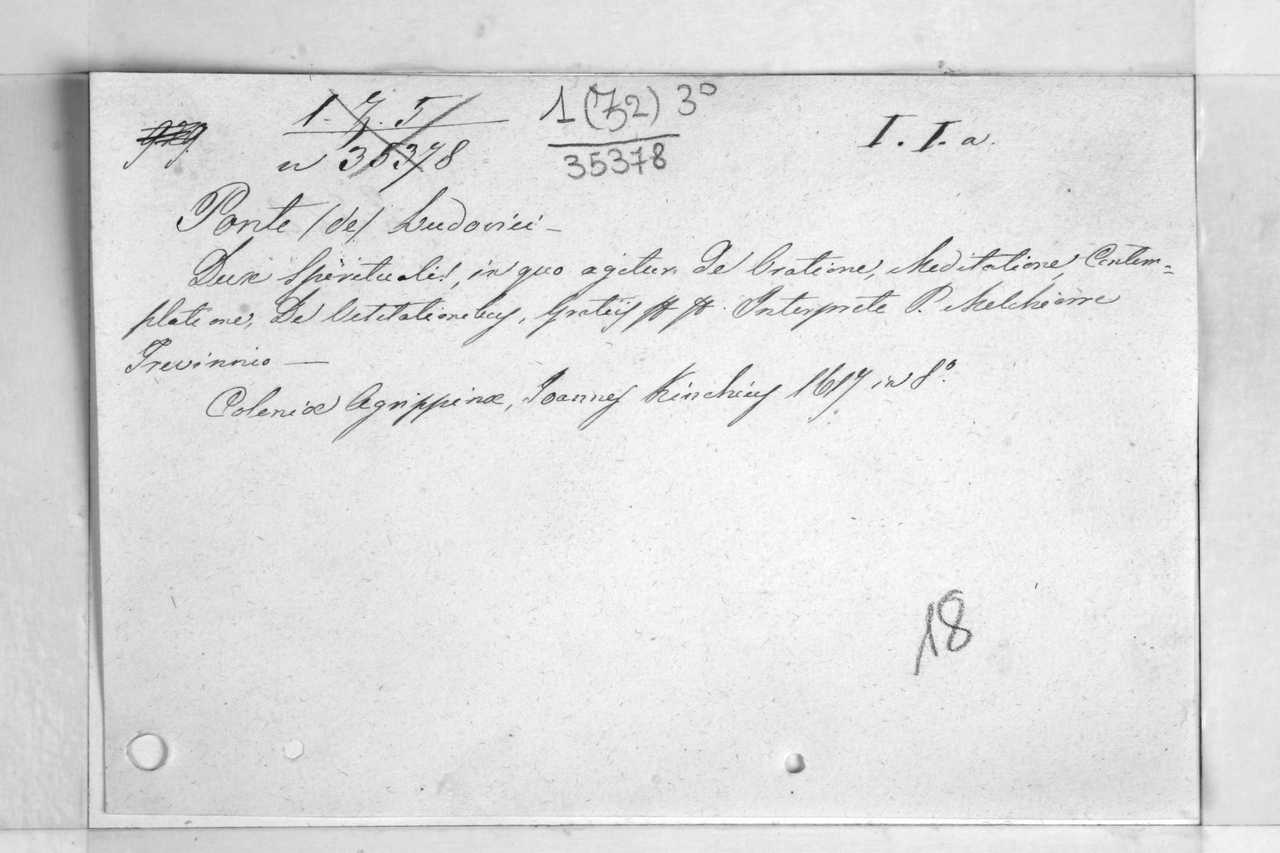 1. Z. 5
1 (Z2) 3°
I. I. a.
n 35378
35378
Ponte (de) Ludovici –
Dux Spiritualis, in quo agitur De Oratione, Meditatione, Contem=
platione, De Visitationibus, Gratiis Interprete P. Melchiorre
Trevinnio —
Coloniæ Agrippinæ, Joannes Kinchius 1617 in 8°.
18